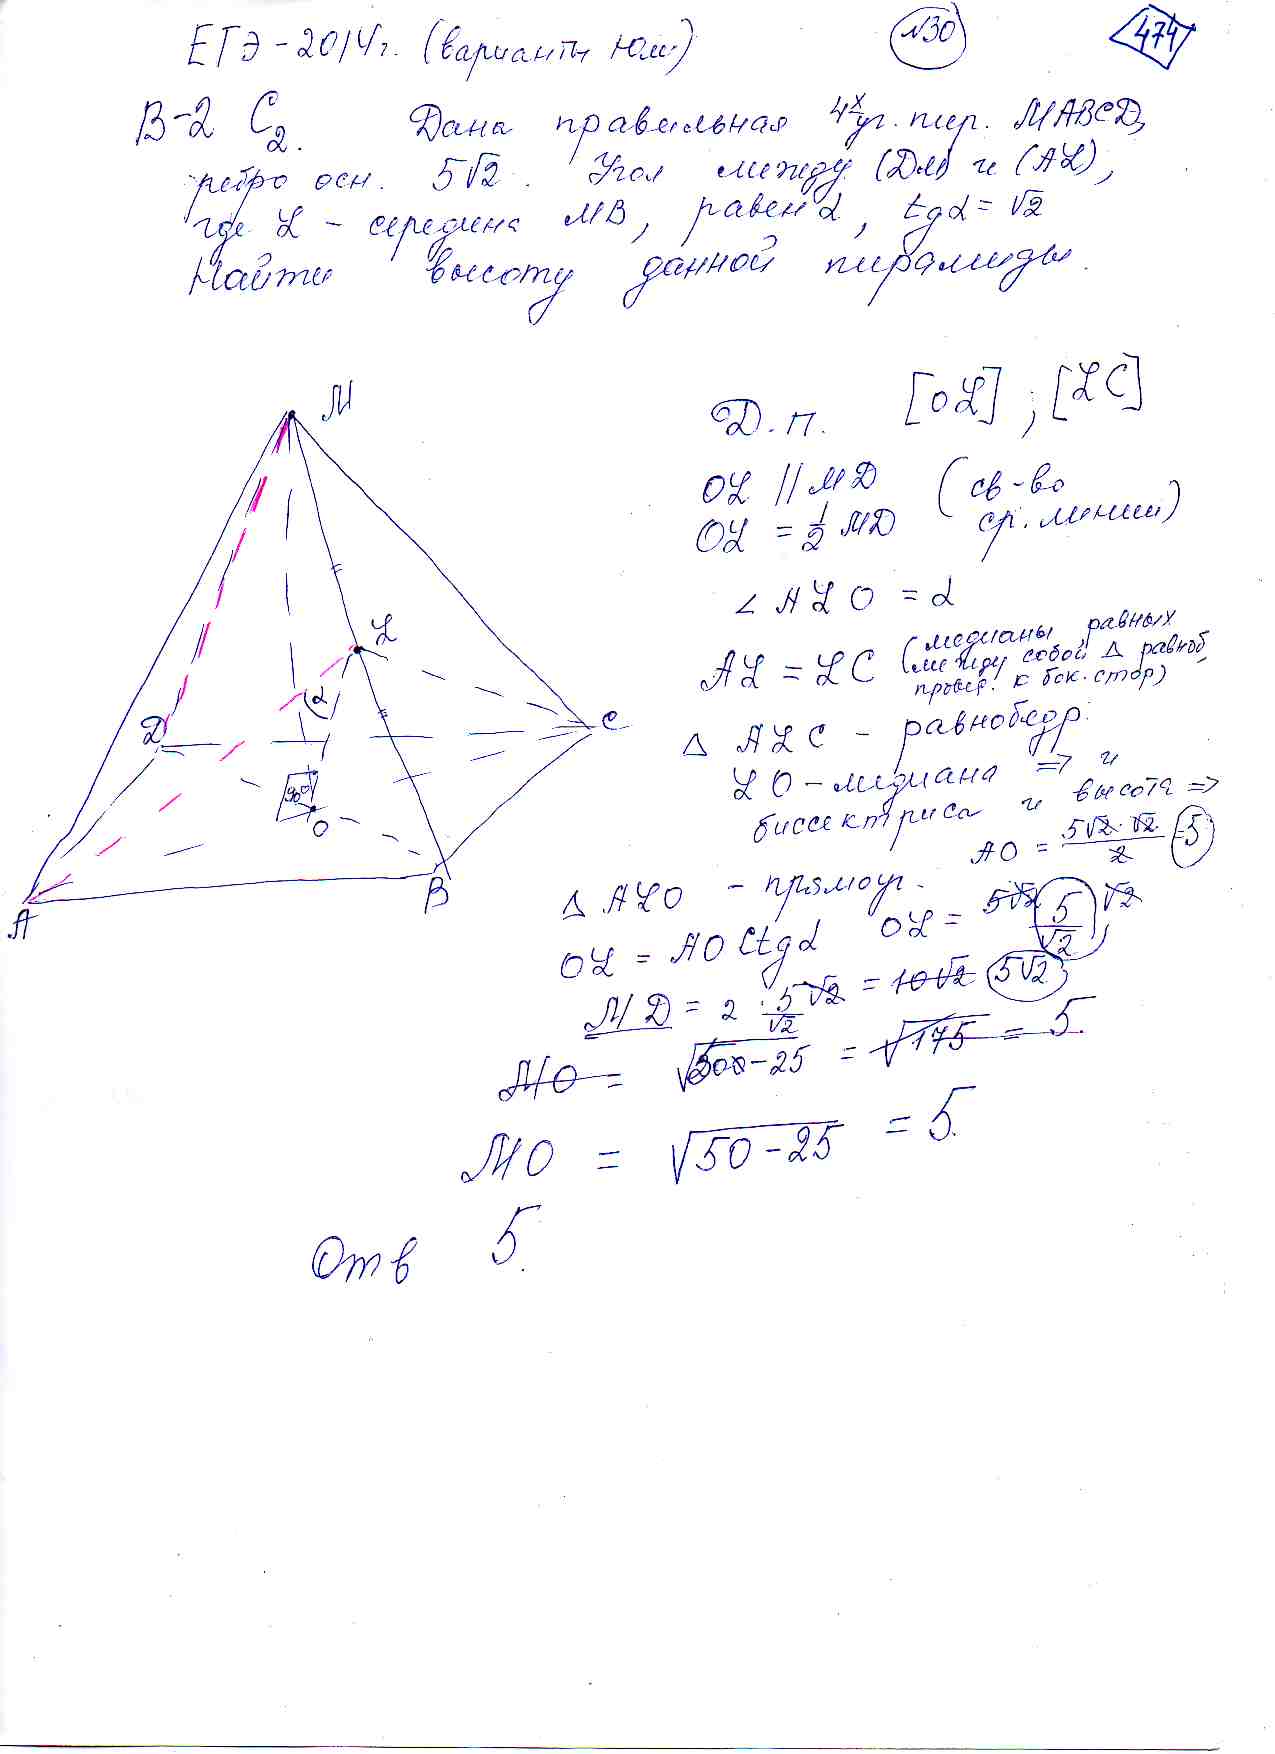 ЕГЭ-2014г. (варианты Юга) №30 474
В-2 С2. Дана правильная 4х уг. пир. MABCD,
ребро осн. 5√2. Угол между (DM) и (AL),
где L - середина MB, равен α, tgα = √2
Найти высоту данной пирамиды.
M
L
α
D
C
90°
O
A
B
Д.п. [OL]; [LC]
OL || MD (св-во
OL = 1/2 MD ср. линии)
∠ALO = α
AL = LC (медианы равных
между собой Δ равноб,
провед. к бок. стор)
Δ ALC - равнобедр.
LO - медиана => и
биссектриса и высота =>
AO = 5√2·√2/2 = 5
Δ ALO - прямоуг.
OL = AO Ctgα OL = 5√2 5/√2 √2
MD = 2 · 5√2/√2 = 10√2 5√2
MO = √300-25 = √175 = 5.
MO = √50-25 = 5.
Отв 5.